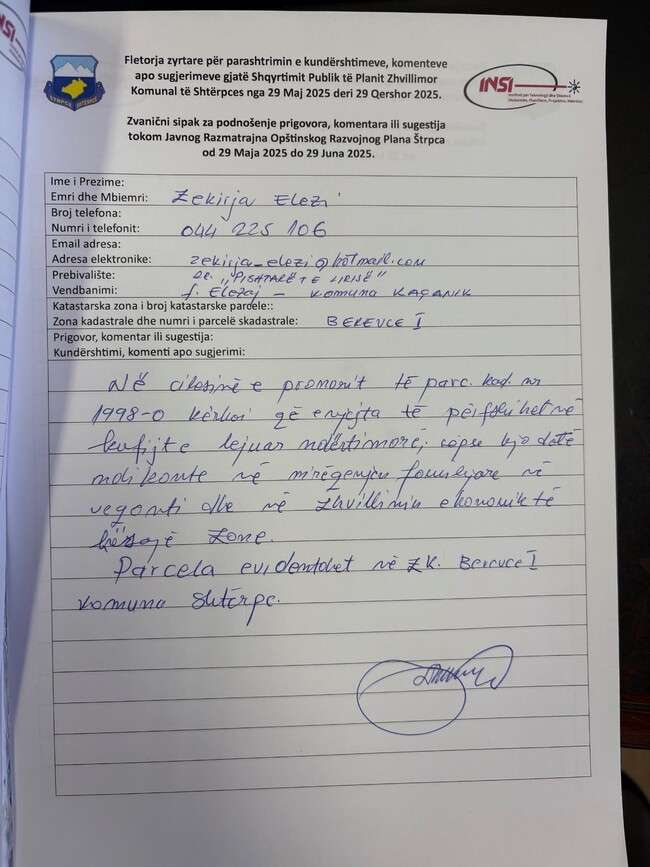 Fletorja zyrtare për parashtrimin e kundërshtimeve, komenteve
apo sugjerimeve gjatë Shqyrtimit Publik të Planit Zhvillimor
Komunal të Shtërpces nga 29 Maj 2025 deri 29 Qershor 2025.
INSI
Zvanični sipak za podnošenje prigovora, komentara ili sugestija
tokom Javnog Razmatrajna Opštinskog Razvojnog Plana Štrpca
od 29 Maja 2025 do 29 Juna 2025.
Ime i Prezime:
Emri dhe Mbiemri: Zekirja Elezi
Broj telefona:
Numri i telefonit: 044 225 106
Email adresa:
Adresa elektronike: zekirja_elezi@hotmail.com
Prebivalište: "PISHTARËT E LIRISË"
Vendbanimi: f. Elezaj - KOMUNA KAÇANIK
Katastarska zona i broj katastarske parcele::
Zona kadastrale dhe numri i parcelë skadastrale: BEREVCE I
Prigovor, komentar ili sugestija:
Kundërshtimi, komenti apo sugjerimi:
Në cilesinë e pronarit të parc. kad. nr
1998-0 kërkoj që e njejta të përfshihet në
kufijte lejuar ndërtimorë, sepse kjo do të
ndikonte në mirëqenien familjare në
veçanti dhe në zhvillimin ekonomik të
kësaje zone.
Parcela evidentohet në ZK. Berevce I
komuna Shtërpc.